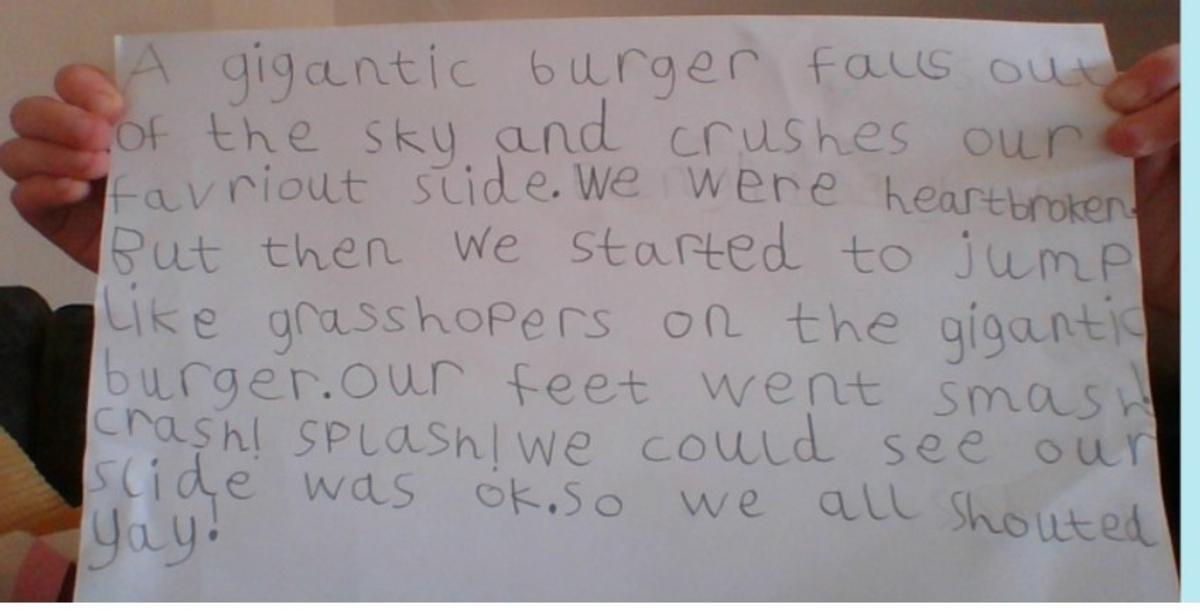 A gigantic burger falls out
of the sky and crushes our
favriout slide. We were heartbroken.
But then we started to jump
like grasshopers on the gigantic
burger. our feet went smash!
crash! splash! we could see our
slide was ok. So we all shouted
yay!